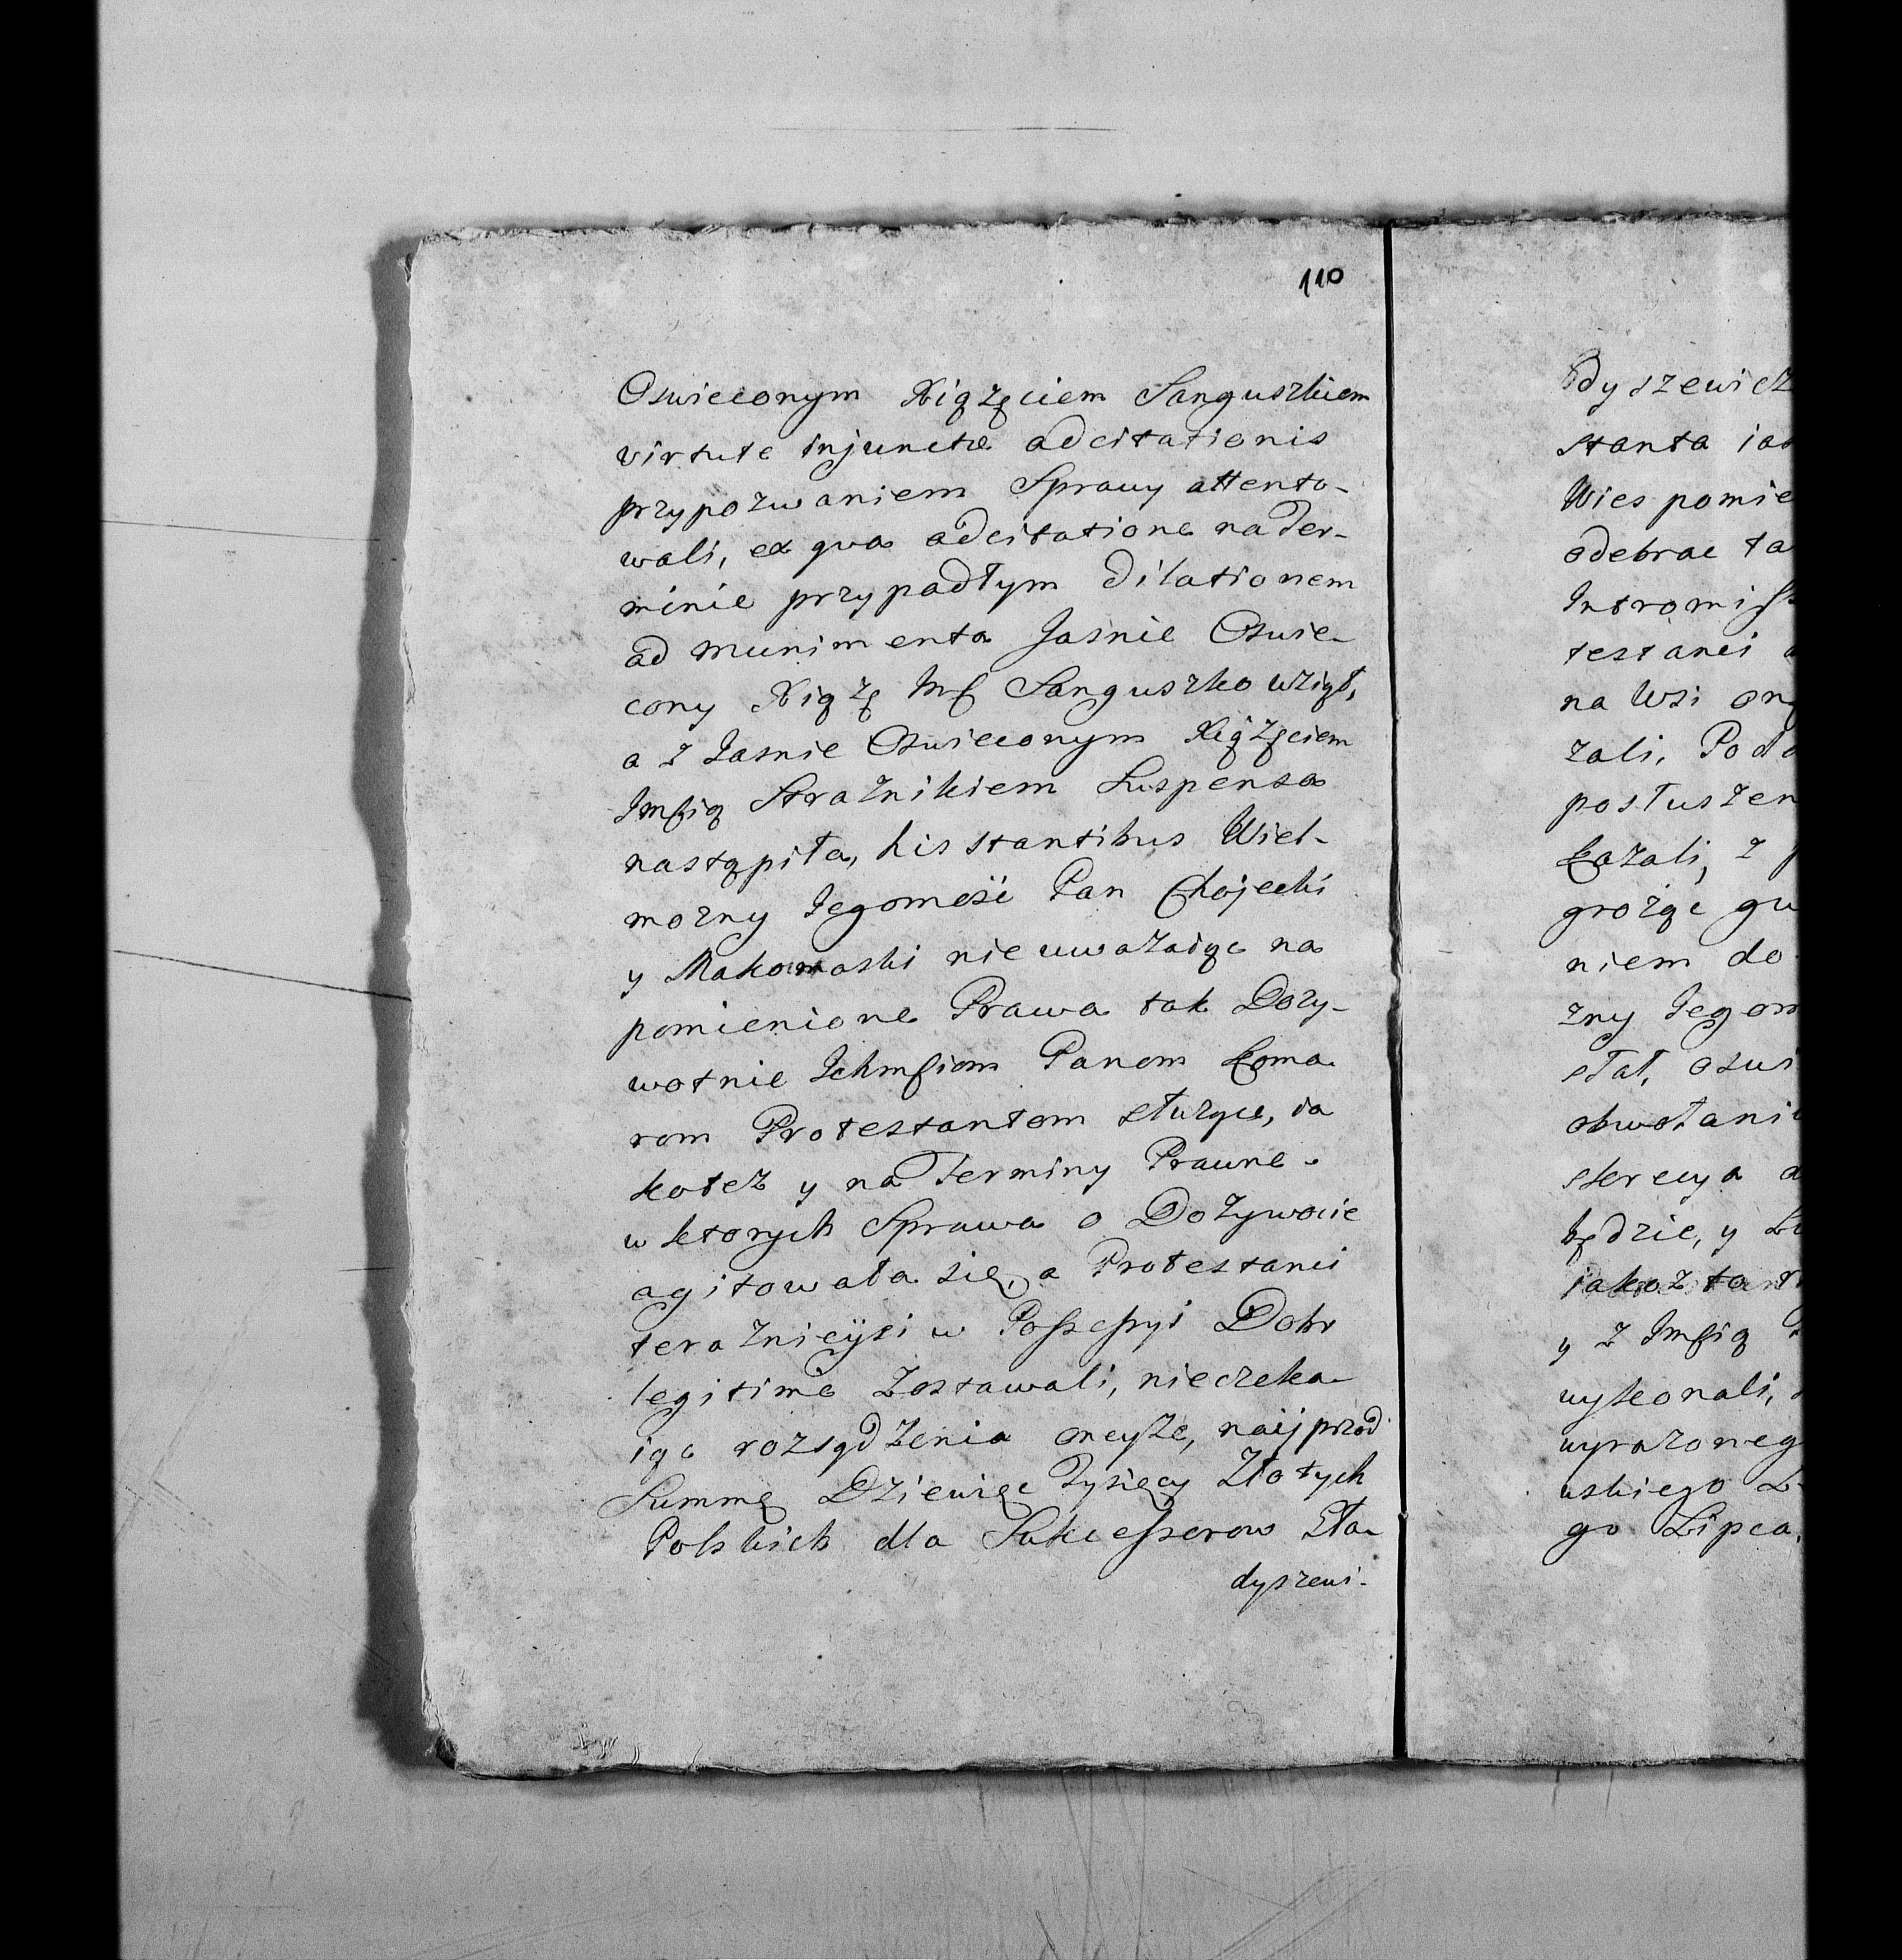 110
Oswieconym Xiązęciem Sanguszkiem
virtute injunctæ adcitationis
przypozwaniem Sprawy attento-
wali, ex qua adcitatione na Ter-
minie przypadłym dilationem
ad munimenta Jasnie Oswie-
cony Xiąze Imść Sanguszko wziął,
a z Jasnie Oswieconym Xiązęciem
Imścią Strażnikiem Suspensa
nastąpiła, his stantibus Wiel-
mozny Jegomość Pan Chojecki
y Makomaski nie uważaiąc na
pomienione Prawa tak Dozy-
wotnie Ichmściom Panom Koma-
rom Protestantom służące, ia
kotez y na Terminy Prawne
w ktorych Sprawa o Dożywocie
agitowała się, a Protestanci
teraznieysi w Possessyi Dobr
legitime zostawali, nieczeka-
iąc rozsądzenia oneyże, naijprzod
Summę Dziewięc Tysięcy Złotych
Polskich dla Sukcessorow Ła-
dyszewi-
dyszewicz
stanta iak
Wies pomie
odebrac ta
Intromiss
testanci
na Wsi on
zali, Podd
posłuszen
kazali, z
grożąc gw
niem do
zny Jegom
stał, oswi
obwołani
skrecya
będzie, y
iakoz ta
y z Imścią
wykonali,
wyrazoneg
uskiego
go Lipca,